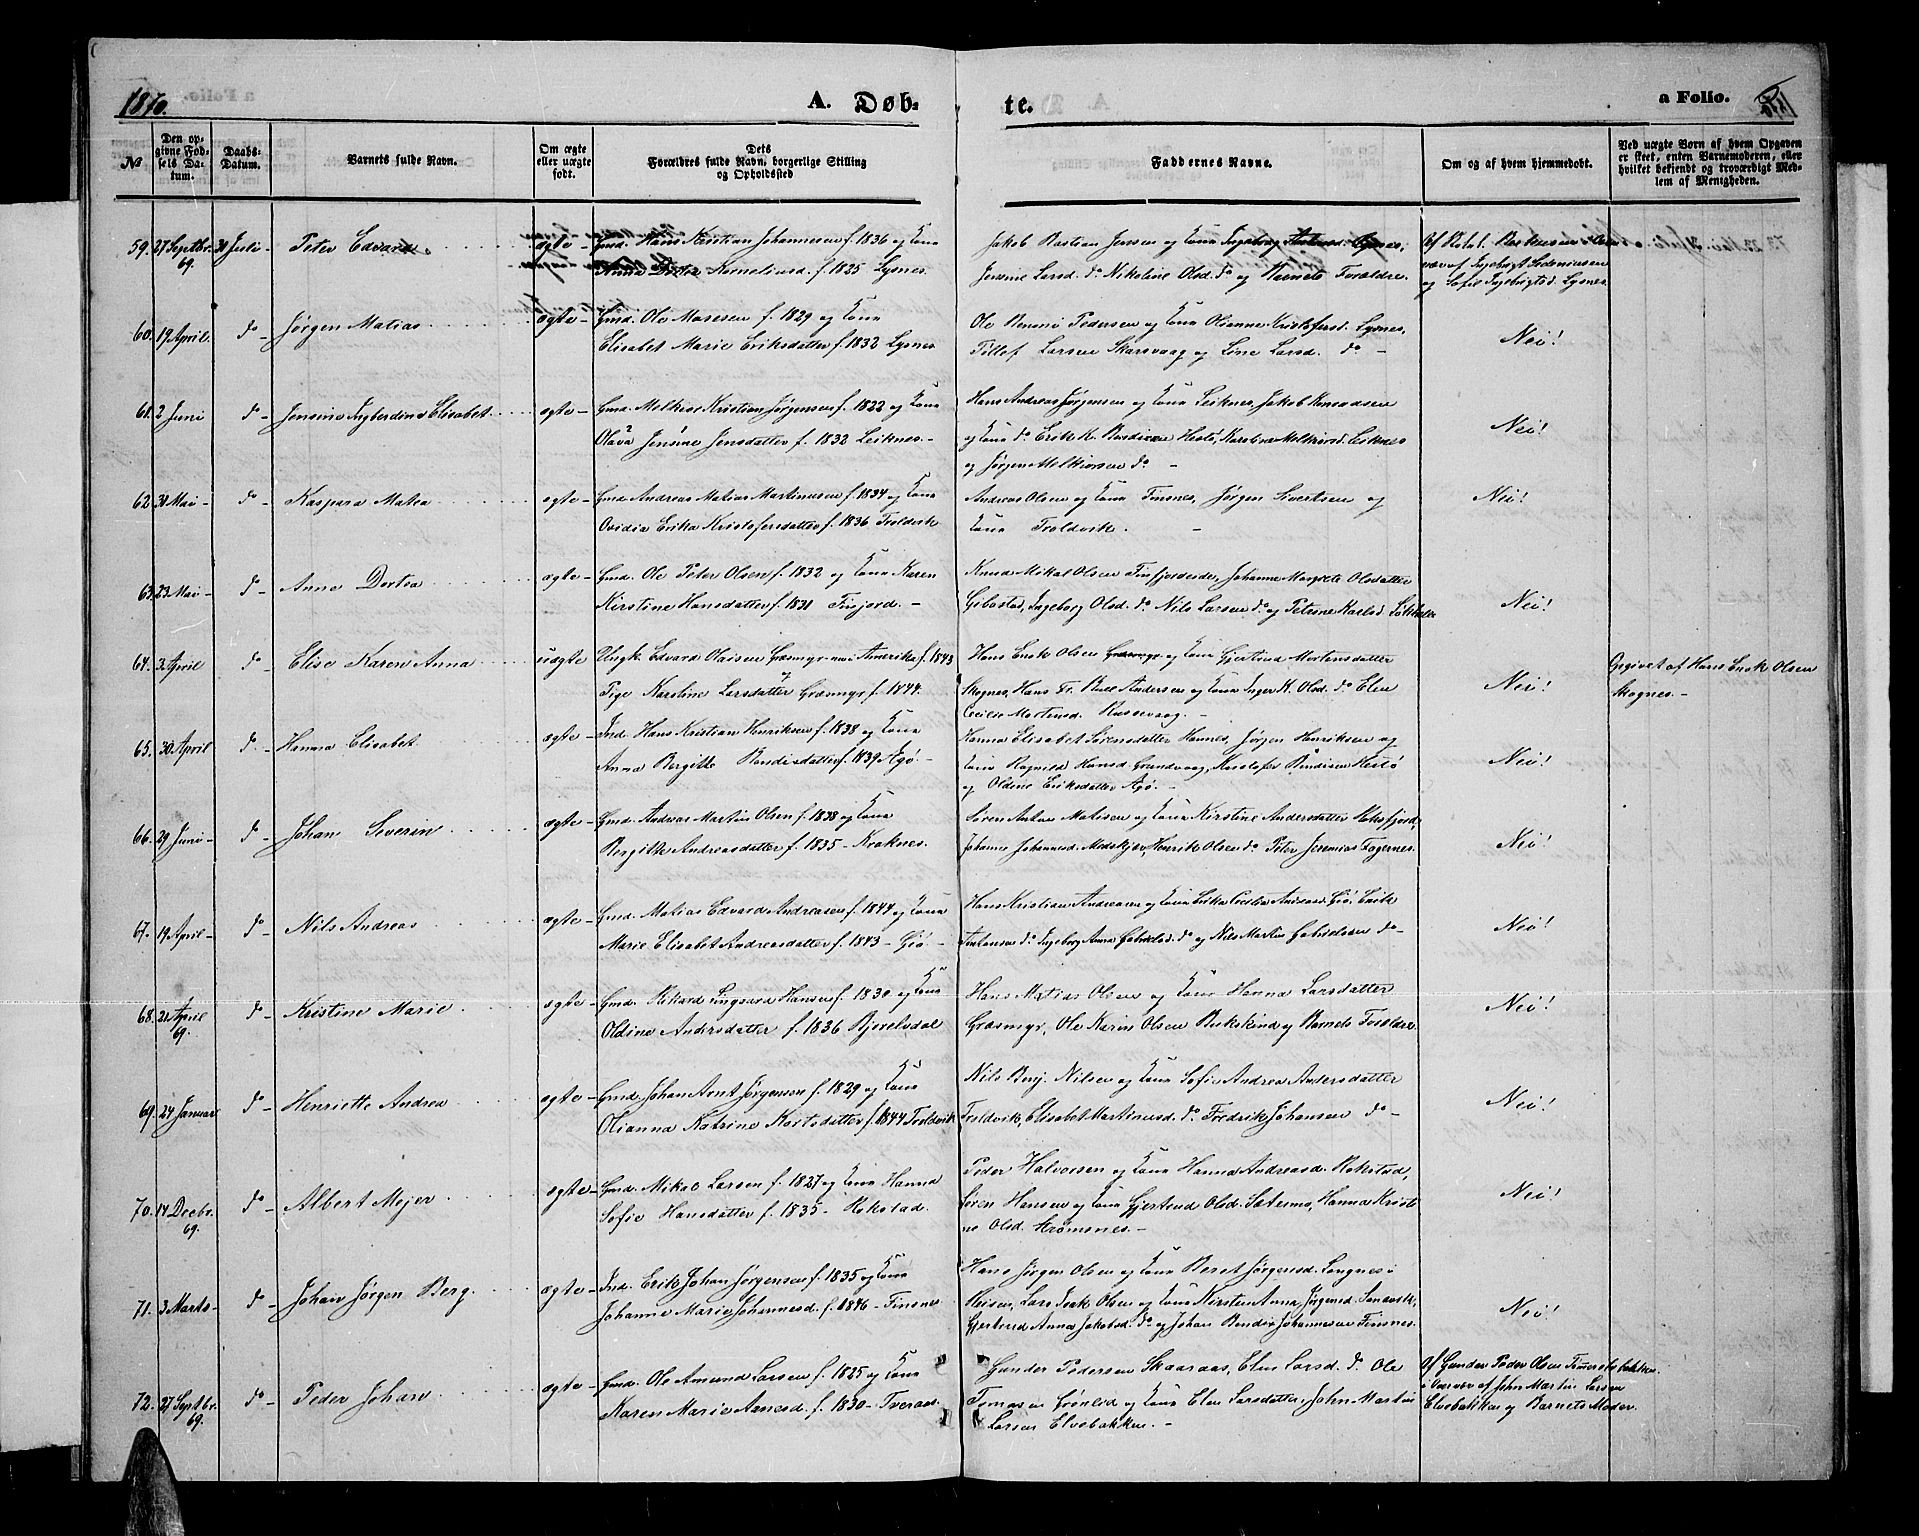 1870.
A. Døb-
te.
a Folio.
№
Den op-
givne Fød-
sels Da-
tum.
Daabs-
Datum.
Barnets fulde Navn.
Om ægte
eller uægte
født.
Dets
Forældres fulde Navn, borgerlige Stilling
og Opholdssted
Faddernes Navne.
Om og af hvem hjemmedøbt.
Ved uægte Børn af hvem Opgaven
er skeet, enten Barnemoderen, eller
hvilket bekjendt og troværdigt Med-
lem af Menigheden.
59. 27 Septbr. 69. 31 Juli - Peter Edvard ægte - Gmd. Hans Kristian Johannesen f. 1836 og Kone
Anne Kornelius d. f. 1825 Lysnes.
Jakob Bastian Jensen og Kone Ingeborg Lysnes,
Jensine Larsd. do Nikoline Olsd. do og Barnets Forældre.
Af nær af Ingebrigt
og Sofie Ingebrigtsd. Lysnes
60. 19 April. do - Jørgen Matias ægte - Gmd. Ole Maresen f. 1829 og Kone
Elisabet Marie Eriksdatter f. 1832 Lysnes
Ole Benoni Pedersen og Kone Olianne Kristofersd. Lysnes,
Tollef Larsen Skarsvaag og Lone Larsd. do -
Nei!
61. 2 Juni do - Jensine Ingberdine Elisabet ægte - Gmd. Melkior Kristian Jørgensen f. 1822 og Kone
Olava Jensine Jensdatter f. 1832 Leiknes. -
Hans Andreas Jørgensen og Kone Leiknes, Jakob Konradsen
og Kone do Erik K. Bendixsen Hestø, Karoline Melkiorsd. Leiknes
og Jørgen Melkiorsen do -
Nei!
62. 31 Mai - do - Kaspara Matea ægte - Gmd. Andreas Matias Martinusen f. 1834 og Kone
Ovidia Erika Kristofersdatter f. 1836 Troldvik
Andreas Olsen og Kone Finsnes, Jørgen Sivertsen og
Kone Troldvik. -
Nei!
63. 23 Mai - do - Anne Dortea ægte - Gmd. Ole Peter Olsen f. 1832 og Kone Karen
Kirstine Hansdatter f. 1831 Finfjord. -
Knud Mikal Olsen Finfjordeide, Johanna Margrete Olsdatter
Gibostad, Ingeborg Olsd. do Nils Larsen do og Petrine Karlsd.
Nei!
64. 3 April do - Elise Karen Anna uægte Ungk. Edvard Olaisen Græsmyr nu i Amerika f. 1843
Pige Karoline Larsdatter Græsmyr f. 1844.
Hans Enok Olsen og Kone Gjertrud Mortensdatter
Skognes, Hans Fr. Buck Andersen og Kone Inger K. Olsd. do Elen
Cecilie Mortensd. Russevaag. -
Nei!
Opgivet af Hans Enok Olsen
Skognes. -
65. 30 April do - Hanna Elisabet ægte - Ind. Hans Kristian Henriksen f. 1838 og Kone
Anna Bergitte Bendixdatter f. 1839 Agø. -
Hanna Elisabet Sørensdatter Hannes, Jørgen Henriksen og
Kone Ragnild Hansd. Grundvaag, Kristofer Bendixen Hestø
og Oldine Eriksdatter Agø. -
Nei!
66. 29 Juni - do - Johan Severin ægte - Gmd. Andreas Martin Olsen f. 1838 og Kone
Bergitte Andreasdatter f. 1835 - Kraknes.
Sören Anton Matisen og Kone Kirstine Andersdatter Rossfjord,
Johanne Johannesd. Modskjær, Henrik Olsen do Peter Jeremias Fagernes.
Nei!
67. 19 April - do - Nils Andreas ægte - Gmd. Matias Edvard Andreasen f. 1844 og Kone
Marie Elisabet Andreasdatter f. 1843 - Giø. -
Hans Kristian Andreasen og Kone Erika Cecilia Giø, Erik
do Ingeborg Anna Gabrielsd. do og Nils Martin Gabrielsen do -
Nei!
68. 21 April 69. do - Kristine Marie ægte - Gmd. Rikard Lingaard Hansen f. 1830 og Kone
Oldine Andersdatter f. 1836 Bjorelvdal
Hans Matias Olsen og Kone Hanna Larsdatter
Græsmyr, Ole Karin Olsen Bukskind og Barnets Forældre
Nei!
69. 24 Januar do - Henriette Andrea ægte - Gmd. Johan Arnt Jørgensen f. 1829 og Kone
Olianna Katrine Kortsdatter f. 1844 Troldvik
Nils Benj. Nilsen og Kone Sofie Andrea Andersdatter
Troldvik, Elisabet Martinusd. do Fredrik Johansen do -
Nei!
70. 14 Decbr. 69. do - Albert Mejer ægte - Gmd. Mikal Larsen f. 1827 og Kone Hanna
Sofie Hansdatter f. 1835 - Rokstad.
Peder Halvorsen og Kone Hanna Andreasd. Rokstad,
Søren Hansen og Kone Gjertrud Olsd. Sætermo, Hanna Kristi-
ne Olsd. Strømsnes. -
Nei!
71. 3 Marts - do - Johan Jørgen Berg. ægte - Ind. Erik Johan Jørgensen f. 1835 og Kone
Johanne Marie Johannesd. f. 1846 - Finsnes
Hans Jørgen Olsen og Kone Beret Jørgensd. Langnes i
Reisen, Lars Isak Olsen og Kone Kirsten Anna Jørgensd. Sandvik,
Gjertrud Anna Jakobsd. do og Johan Bendix Johannesen Finsnes.
Nei!
72. 27 Septbr. 69. do - Peder Johan ægte - Gmd. Ole Amund Larsen f. 1825 og Kone
Karen Marie Aanesd. f. 1830 - Tveraas
Gunder Pedersen Skaaraas, Elen Larsd. do Ole
Tomasen Grønlid og Kone Elen Larsdatter, John Martin
Larsen Elvebakken. -
Af Gunder Peder Olsen
i Nærvær af John Martin Larsen
Elvebakken og Barnets Moder.